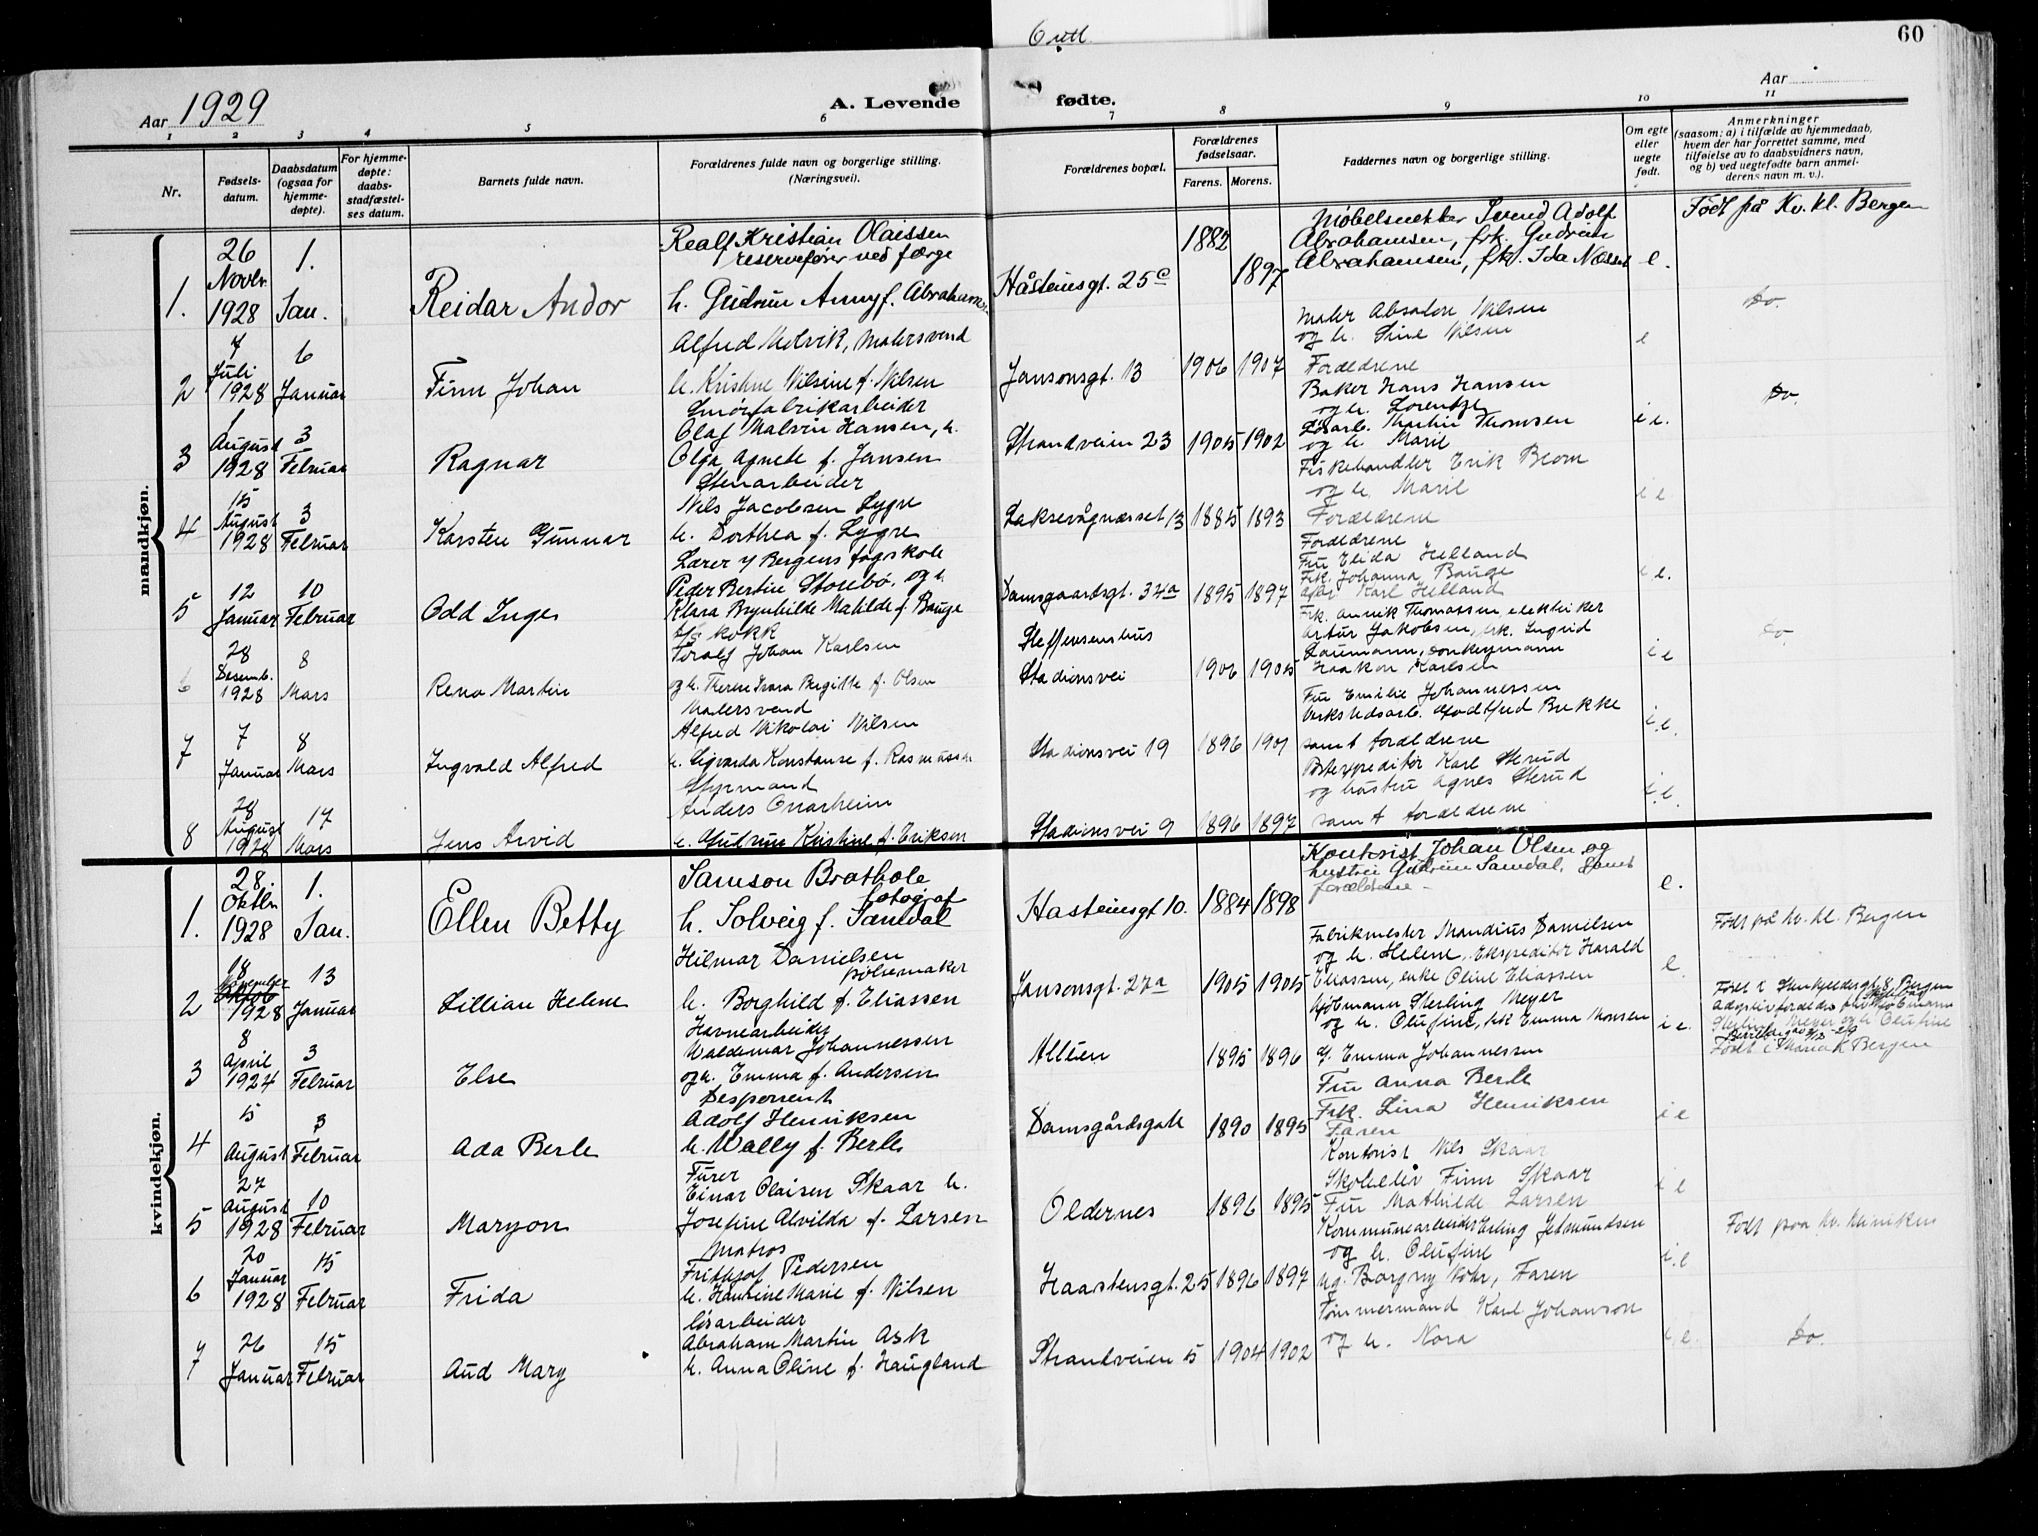 6 útl.
60
Aar 1929
A. Levende fødte.
Aar
1 2 3 4 5 6 7 8 9 10 11
Nr.
Fødsels-
datum.
Daabsdatum
(ogsaa for
hjemme-
døpte).
For hjemme-
døpte:
daabs-
stadfæstel-
ses datum.
Barnets fulde navn.
Forældrenes fulde navn og borgerlige stilling.
(Næringsvei).
Forældrenes bopæl.
Forældrenes
fødselsaar.
Farens. Morens.
Faddernes navn og borgerlige stilling.
Om egte
eller
uegte
født.
Anmerkninger
(saasom: a) i tilfælde av hjemmedaab,
hvem der har forrettet samme, med
tilføielse av to daabsvidners navn,
og b) ved uegtefødte barn anmel-
derens navn m. v.).
mandkjøn.
1. 26 Novbr. 1928
1. Jan.
Reidar Andor
Realf Kristian Olaissen
reservefører ved færge
h. Gudrun Anny f. Abrahams.
Håsteinsgt. 25c
1882 1897
Møbelsnekker Svend Adolf
Abrahamsen, frk. Gudrun
Abrahamsen, frk. Ida Næsset
e.
Født på Kv. kl. Bergen
2 7 Juli 1928
6 Januar
Finn Johan
Alfred Melvik, Malersvend
h. Kristine Nilsine f. Nilsen
Jansonsgt. 13
1906 1907
Maler Absalon Nilsen
og h. Sine Nilsen
Foreldrene
e
Do.
3 1 August 1928
3 Februar
Ragnar
Smørfabrikarbeider
Olaf Malvin Hansen, h.
Olga Agnete f. Jansen
Strandveien 23
1905 1902
Baker Hans Hansen
og h. Lorentze
Løsarb. Martin Thomsen
og h. Maril
i e.
Do.
4 15 August 1928
3 Februar
Karsten Gunnar
Stenarbeider
Nils Jacobsen Lygre
h. Dorthea f. Lygre
Laksevågneset 13
1885 1893
Fiskehandler Erik Blom
og h. Maril
Foreldrene
i e
5 12 Januar
10 Februar
Odd Inge
Lærer v/ Bergens fagskole
Peder Bertin Storebø, og h.
Klara Brynhilde Matilde f. Bauge
Damsgaardsgt. 34a
1895 1897
Foreldrene
Fru Elida Helland
Frk. Johanna Bauge
Karl Helland
i e.
6 28 Desemb. 1928
8 Mars
Reno Martin
kokk
Torolf Johan Karlsen
og h. Therese Ivara Birgitte f. Olsen
Steffensenshus
Stadionsvei
1906 1905
Frk. Annik Thomassen elektriker
Artur Jakobsen, frk. Ingrid
Haakon Karlsen
i e
Do
7 7 Januar
8 Mars
Ingvald Alfred
Malersvend
Alfred Nikolai Nilsen
h. Sigvarda Konstanse f. Rasmussen
Stadionsvei 19
1896 1901
Fru Emilie Johannessen
Verkstedsarb. Godtfred Bekke
samt foreldrene
i e.
8 28 August 1928
17 Mars
Jens Arvid
Styrmand
Anders Onarheim
h. Gudrun Kristine f. Eriksen
Stadionsvei 9
1896 1897
Postexpeditør Karl Sterud
og hustru Agnes Sterud
samt foreldrene
i e.
kvindekjøn.
1. 28. Oktbr. 1928
1. Jan.
Ellen Betty
Samson Brathole
fotograf
h. Solveig f. Samdal
Hasteinsgt 10.
1884 1898
Kontorist Johan Olsen og
hustru Gudrun Samdal, samt
forældrene
e.
Født på kv. kl. Bergen
2 18 November 1928
13 Januar
Lillian Helene
Hilmar Danielsen
pølsemaker
h. Borghild f. Eliassen
Jansonsgt. 27a
1905 1905
Fabrikmester Mandius Danielsen
og h. Helene, Ekspeditør Harald
Eliassen, enke Oline Eliassen
e.
3 8 April 1924
3 Februar
Else
Havnearbeider
Waldemar Johannessen
og h. Emma f. Andersen
Alleen
1895 1896
Sterling Meyer
og h. Olufine, frk Emma Monsen
G. Emma Johannessen
i e.
Født i Bergen
4 15 August
3 Februar
Ada Berle
Desponent
Adolf Henriksen
h. Wally f. Berle
Damsgårdsgate
1890 1895
Fru Anna Berle
Frk. Lina Henriksen
Faren
i e
5 27 August 1928
10 Februar
Maryon
Fører
Einar Olaisen Skaar h.
Josefine Alvilda f. Larsen
Oldernes
1896 1895
Kontorist Nils Skaar
Skoleelev Finn Skaar
Fru Mathilde Larsen
i e
6 20 Januar 1928
15 Februar
Frida
Matros
Frithjof Pedersen
h. Hansine Marie f. Nilsen
Haastensgt. 25
1896 1897
Kommunearbeider Erling Jetmundsen
og h. Olufine
Ug. Borgny Mohr, Faren
i.e
Født paa kv. klinikken
7 26 Januar
15 Februar
Aud Mary
løsarbeider
Abraham Martin Ask
h. Anna Oline f. Haugland
Strandveien 5
1904 1902
Tømmermand Karl Johanson
og h. Nora
i e.
Do.